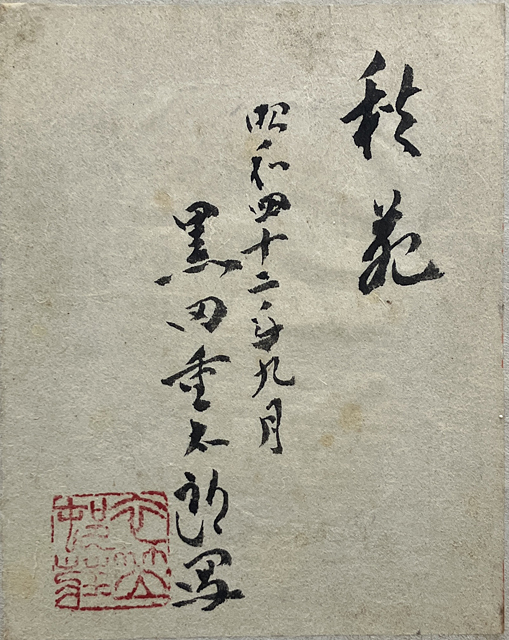 秋苑
昭和四十二年九月
黒田重太郎写